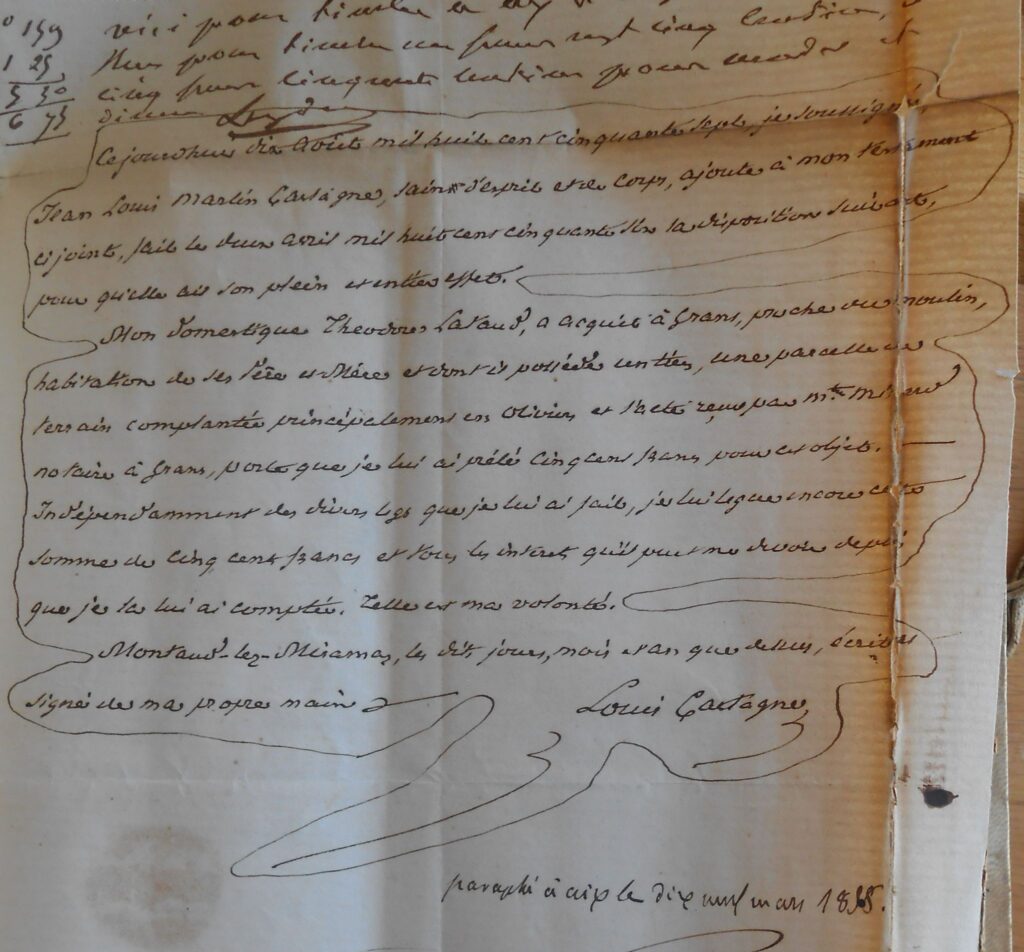 0 159 reçu pour timbre
1 25 Plus pour timbre un franc vingt cinq centimes,
5 50 cinq francs cinquante centimes pour
6 75 dixième
Cejourdhui dix Août mil huit cent cinquante sept, je soussigné,
Jean Louis Martin Castagne, sain d'esprit et de corps, ajoute à mon testament
ci joint, fait le deux avril mil huit cent cinquante six la disposition suivante,
pour qu'elle ait son plein et entier effet.
Mon domestique Theodore Lataud, a acquit à Grans, proche du moulin,
habitation de ses Père et Mère et dont il possède un tiers, une parcelle de
terrain complantée principalement en oliviers et l'acte reçu par mtre
notaire à Grans, porte que je lui ai prêté cinq cent francs pour cet objet.
Indépendamment des divers legs que je lui ai fait, je lui legue encore cette
somme de cinq cent francs et tous les interet qu'il put me devoir depuis
que je la lui ai comptée. Telle est ma volonté.
Montaud-lez-Miramas, les dit jours, mois et an que dessus, écrit et
signé de ma propre main
Louis Castagne
paraphé à aix le dix neuf mars 1858.